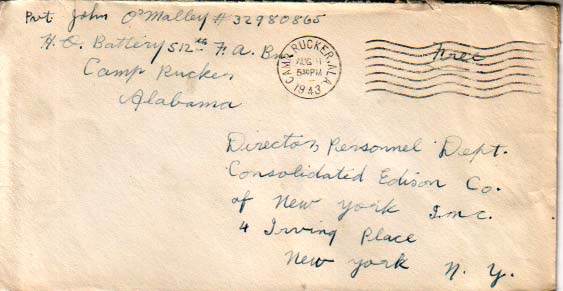 Pvt John O'Malley # 32980865
H.Q. Battery 512th F.A. Bn
Camp Rucker
Alabama
CAMP RUCKER, ALA.
AUG 11
5 PM
1943
Free
Director Personnel Dept.
Consolidated Edison Co.
of New York Inc.
4 Irving Place
New York N. Y.